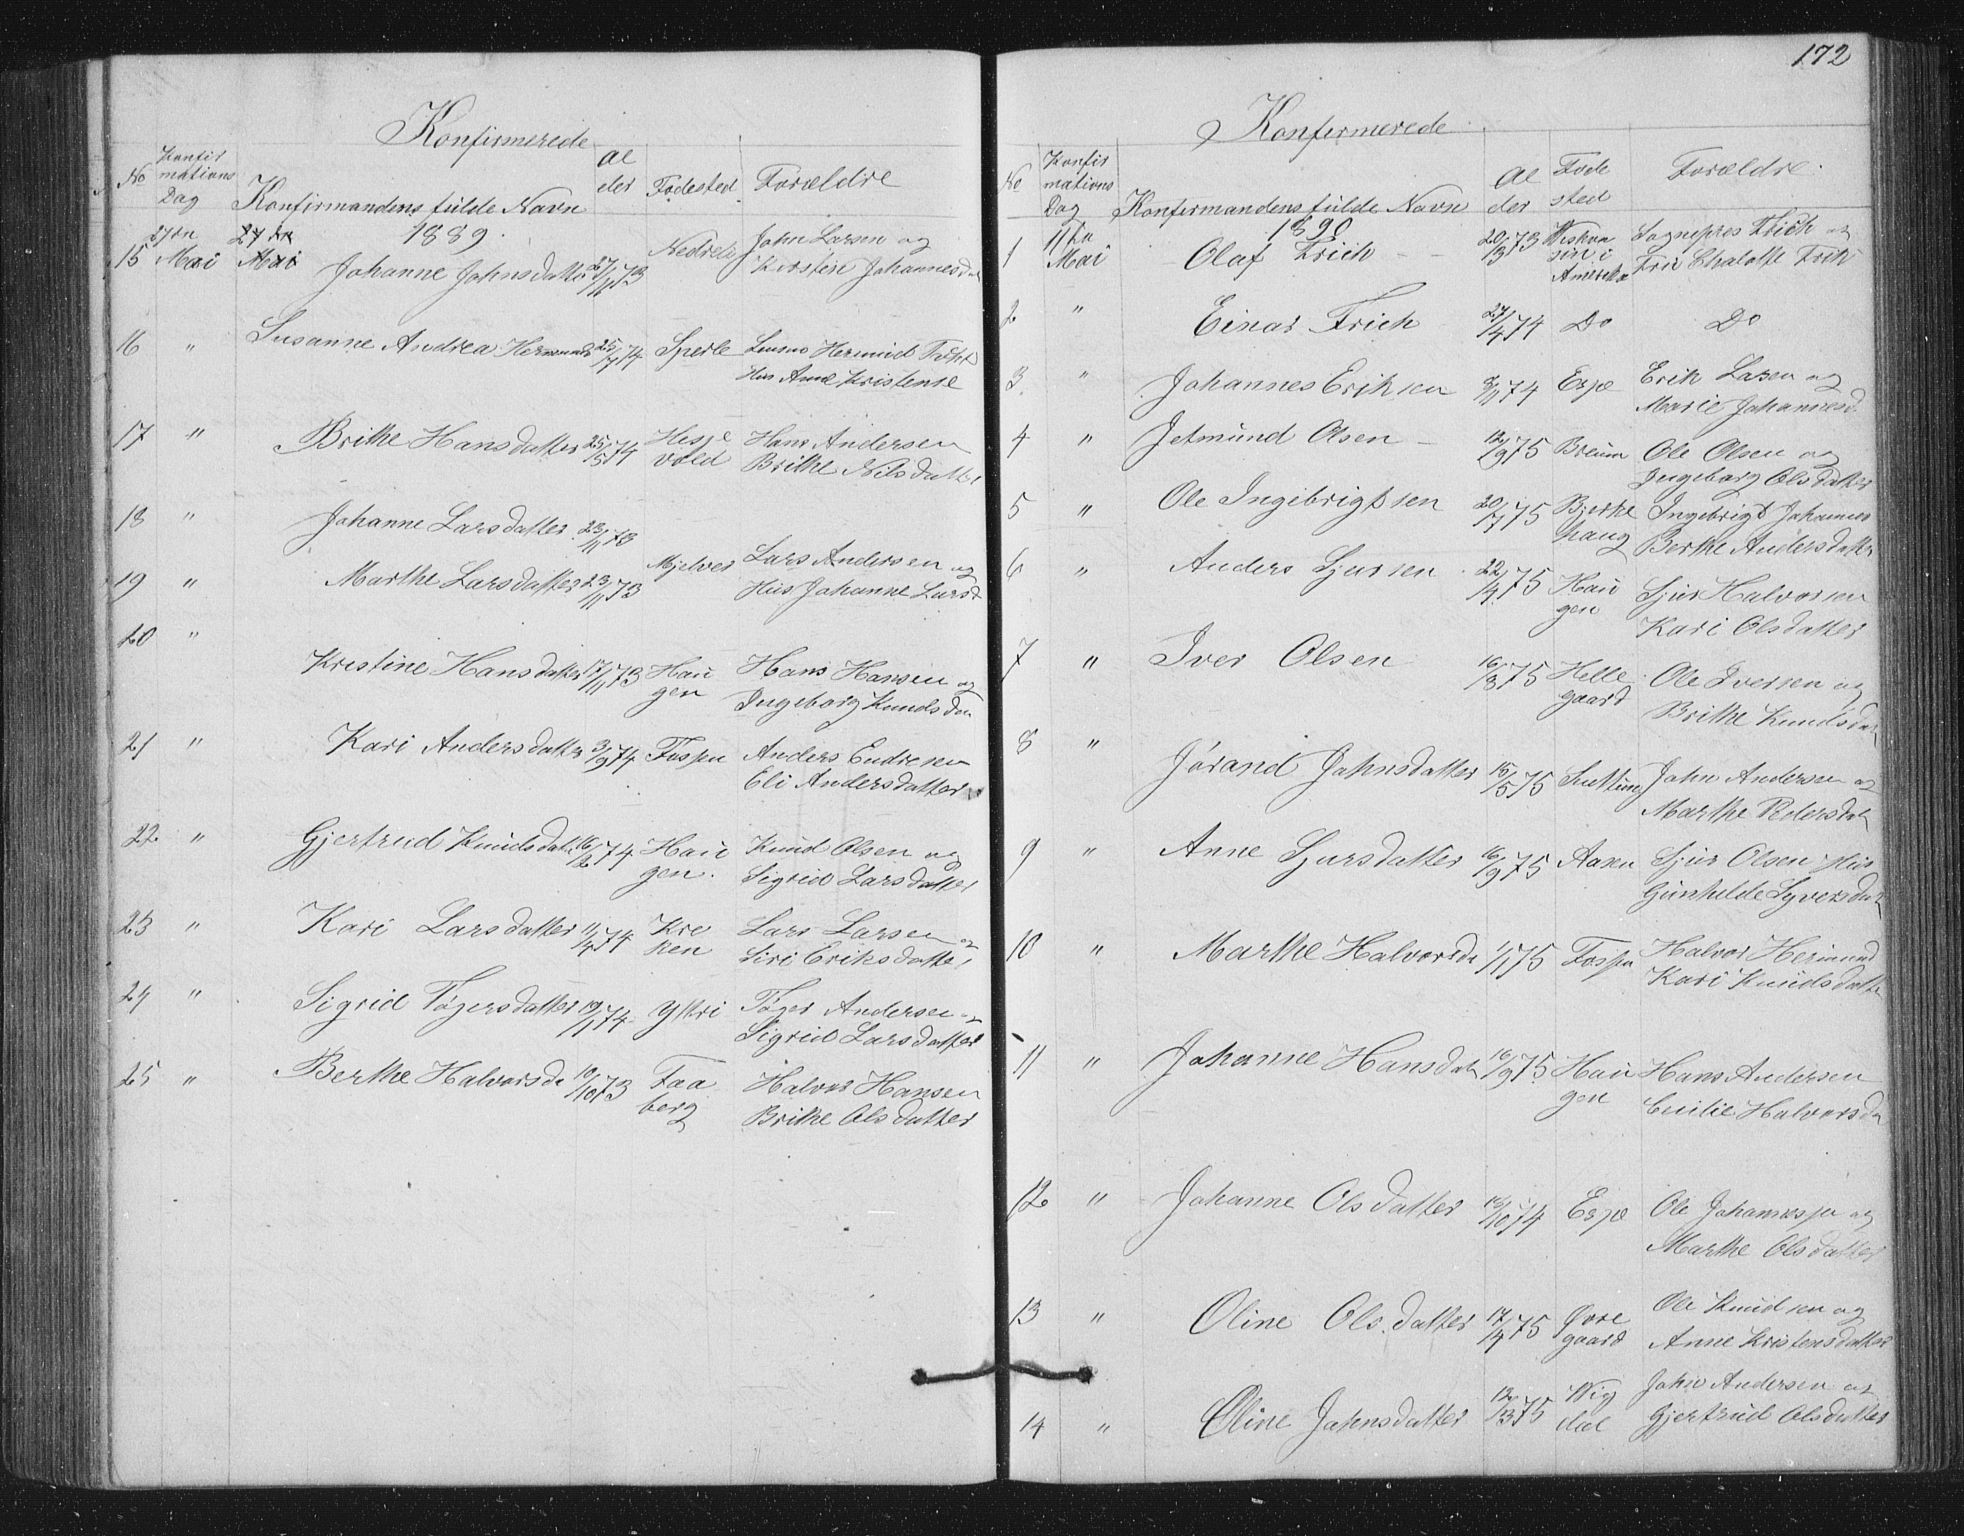 172
Konfirmerede
No Konfir mations Dag Konfirmandens fulde Navn Al der Fødested Forældre
27 de 27 de 1889.
15 Mai Mai Johanne Johnsdatter 27/11 73 Nedrele John Larsen og
Kirstine Johannesd
16 " Susanne Andrea Hermunds 25/7 74 Sperle Hermund
Hus Anne Kristense
17 " Brithe Hansdatter 25/5 74 Hesje vold Hans Andersen
Brithe Nilsdatter
18 " Johanne Larsdatter 23/11 73
Mjelver Lars Andersen og
19 " Marthe Larsdatter 23/11 73 Hus Johanne Larsd
20 "
Kristine Hansdatter 17/11 73 Hau gen Hans Hansen og
Ingeborg Knudsda
21 " Kari Andersdatter 3/9 74 Fosjen Anders Endresen
Eli Andersdatter
22 " Gjertrud Knudsdat 16/2 74 Hau gen. Knud Olsen og
Sigrid Larsdatter
23 " Kari Larsdatter 11/4 74 Kre ken Lars Larsen og
Siri Eriksdatter
24 " Sigrid Tøgersdatter 19/1 74 Ystri Tøger Andersen og
Sigrid Larsdatter
25 " Berthe Halvorsda 19/10 73 Faa berg Halvor Hansen
Brithe Olsdatter
Konfirmerede
No Konfir mations Dag Konfirmandens fulde Navn Al der Føde sted Forældre.
11 te 1890
1 Mai Olaf Frich 20/3 73 Viskon sin i Amerika Sogнepres Frich og
Fru Chalotte Frich
2 " Einar Frich 27/4 74 Do Do
3 " Johannes Eriksen 8/11 74 Espe Erik Lasen og
Marie Johannesd.
4 " Jetmund Olsen 12/9 75 Breum Ole Olsen og
Ingeborg Olsdatter
5 " Ole Ingebrigtsen 20/7 75 Bjerke haug Ingebrigt Johannes
Berthe Andersdatte
6 " Anders Sjursen 22/4 75 Hau gen Sjur Halvorsen
Kari Olsdatter
7 " Iver Olsen 16/8 75 Helle gaard Ole Iversen og
Brithe Knudsdat
8 " Jørand Johnsdatter 15/5 75 John Andersen og
Marthe Pedersdat
9 " Anne Sjursdatter 16/9 75 Aaren Sjur Olsen Hus
Gunhilde Syversdat
10 " Marthe Halvorsda 1/1 75 Fosjen Halvor Hermund
Kari Knudsdatte
11 " Johanne Hansdat 16/9 75 Hau gen Hans Andersen
Cecilie Halvorsda
12 " Johanne Olsdatter 18/10 74 Espe Ole Johannesen og
Marthe Olsdatter
13 " Oline Olsdatter 17/4 75 Øvre gaard Ole Knudsen og
Anne Kristensdatter
14 " Oline Johnsdatter 12/3 75 Vig dal John Andersen og
Gjertrud Olsdatter